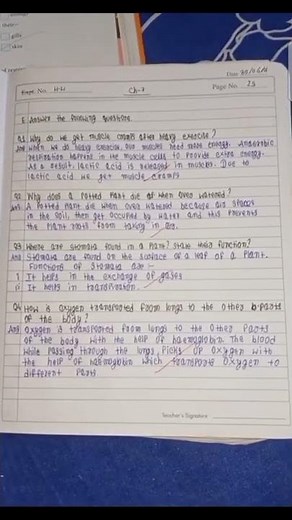 Page No. 44
Ch-7
Date
Page No. 23
E. Answer the following questions
Q1 Why do we get muscle cramps after heavy exercise?
Ans when we do heavy exercise, our muscles need more energy. Anaerobic
respiration happens in the muscle cells to provide extra energy.
As a result, lactic acid is released in muscles. Due to
lactic acid we get muscle cramps
Q2 Why does a Potted Plant die of when over watered?
Ans A Potted Plant die when over watered because air spaces
in the soil, then get occupied by water and this prevents
the Plant roots from taking in
Q3 Where are stomata found in a Plant? State their function?
Ans Stomata are found on the surface of a leaf of a Plant.
Functions of stomata are
I It helps in the exchange of gases
It helps in transpiration.
Q4 How is oxygen transported from lungs to the other Parts
of the body?
Ans Oxygen is transported from lungs to the other Parts
of the body with the help of haemoglobin The blood
while Passing through the lungs, Picks up oxygen with
the help of haemoglobin which transports Oxygen to
different Parts
Teacher's Signature